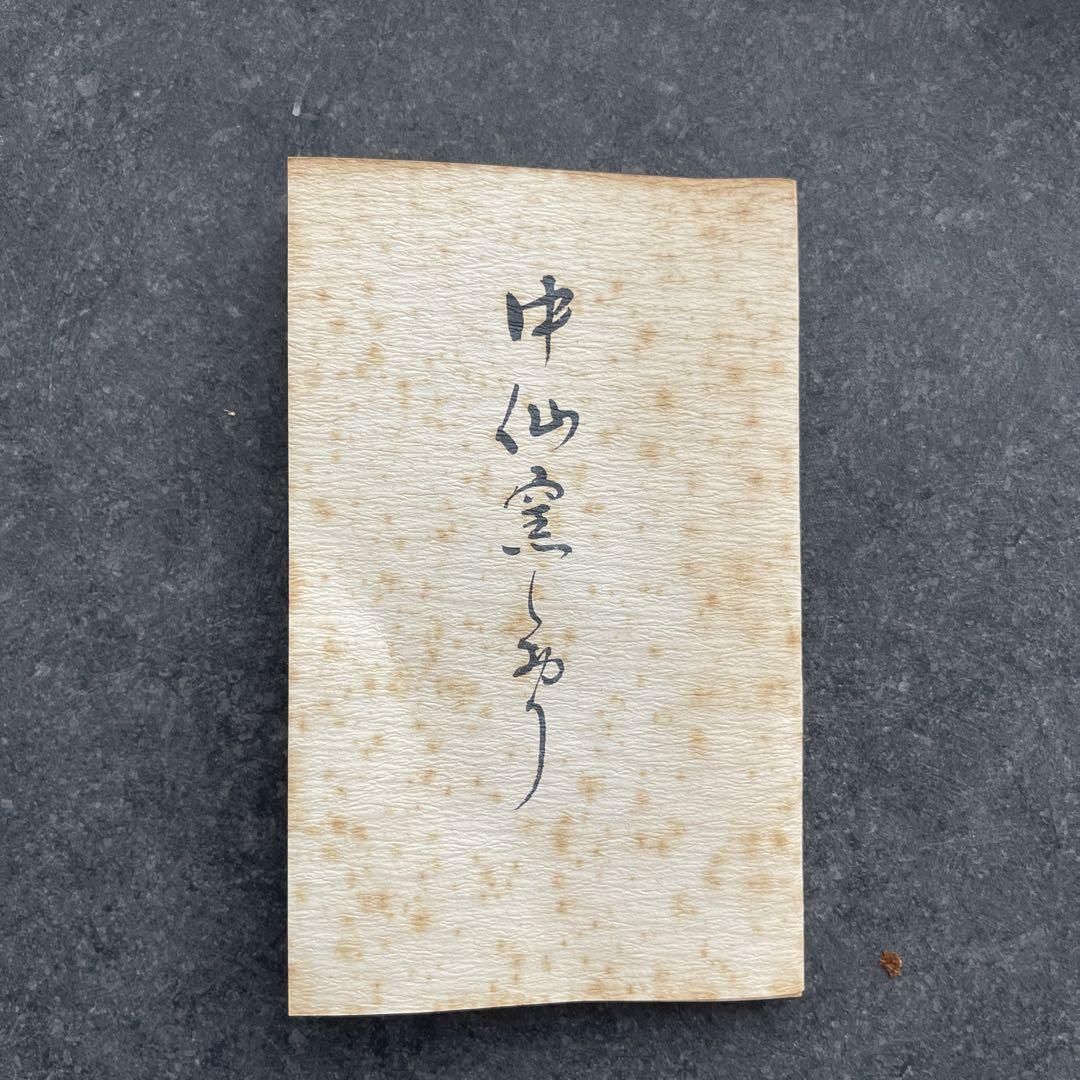 中仙窯しおり